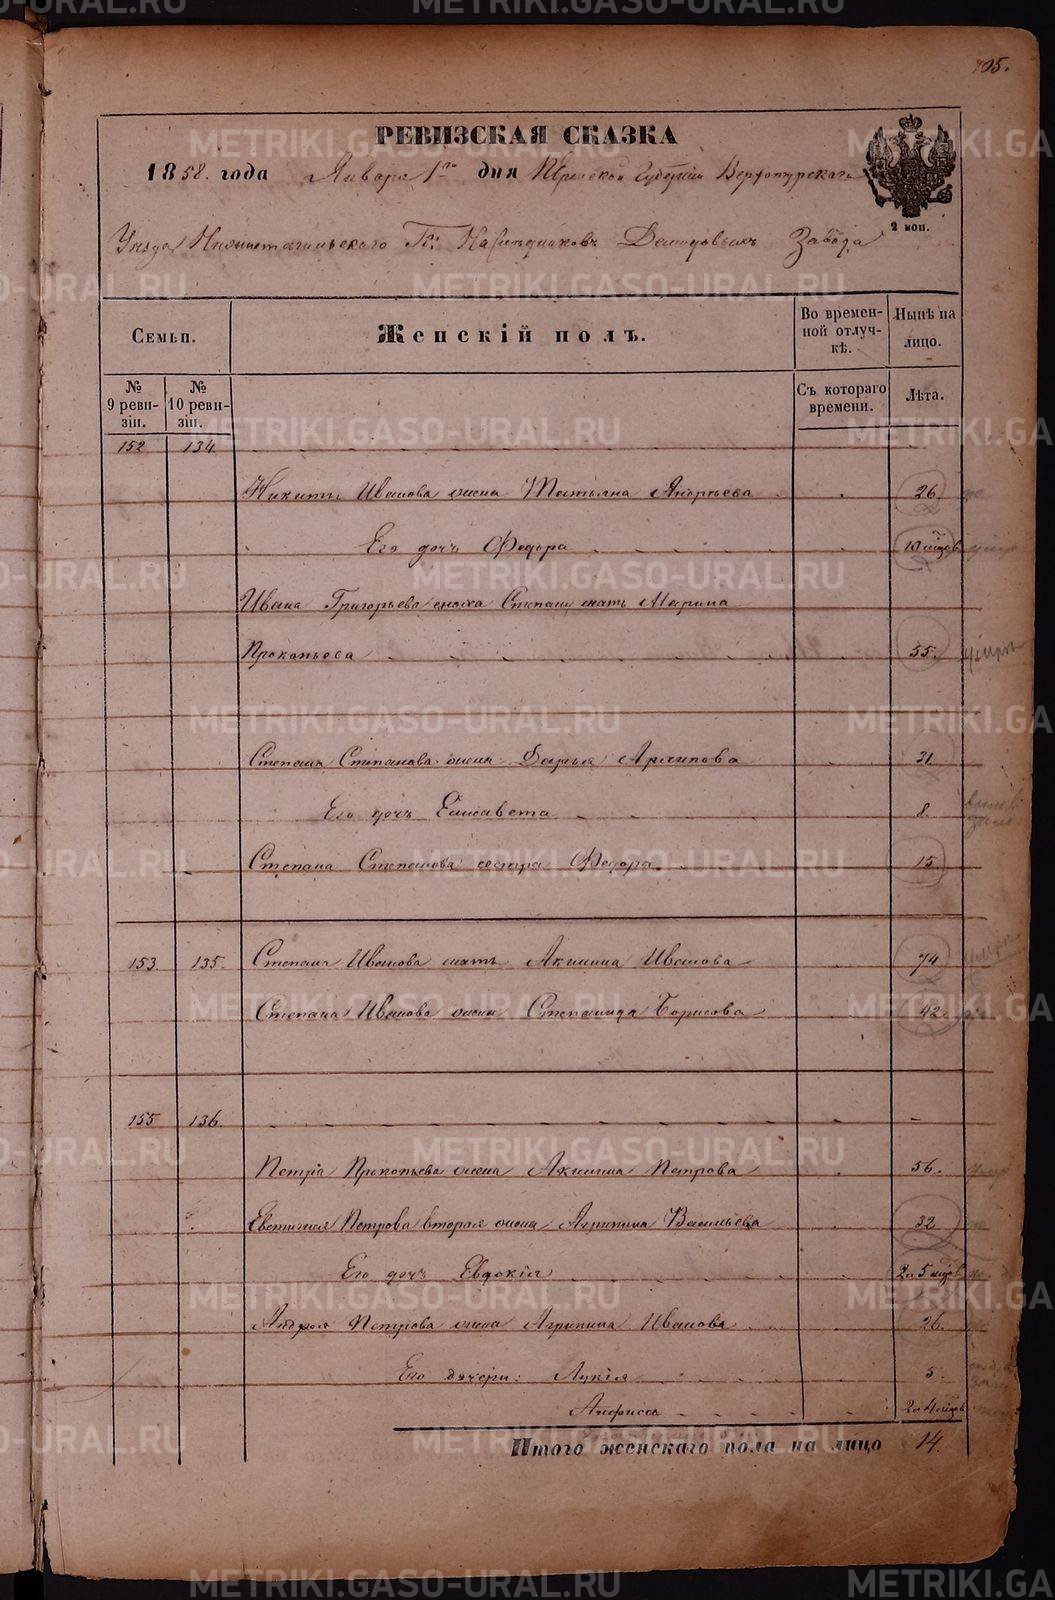 105.
РЕВИЗСКАЯ СКАЗКА
1858. года Января 1го дня Пермской Губернии Верхотурскаго
2 коп.
Уезда Нижнетагильскаго Гг. Наследников Демидовых Завода
Семьи.
Женскій полъ.
Во временной отлучкѣ.
Нынѣ на лицо.
№ 9 ревизіи.
№ 10 ревизіи.
Съ котораго времени.
Лѣта.
152 134
Никиты Иванова жена Татьяна Андреева 26
Его дочь Федора 10 мцов
Ивана Григорьева сноха Степана мать Марина
Прокопьева 55.
Степана Степанова жена Дарья Архипова 31
Его дочь Елисавета 8.
Степана Степанова сестра Федора 15
153 135. Степана Иванова мать Акилина Иванова 74
Степана Иванова жена Степанида Борисова 42
155 136.
Петра Прокопьева жена Акилина Петрова 56.
Евстигнея Петрова вторая жена Агрипина Васильева 32
Его дочь Евдокія 2 и 5 мцов
Андрея Петрова жена Агрипина Иванова 26.
Его дочери: Лукія 5.
Анфиса 2 и 4 мцов
Итого женскаго пола на лицо 14.
METRIKI.GASO-URAL.RU